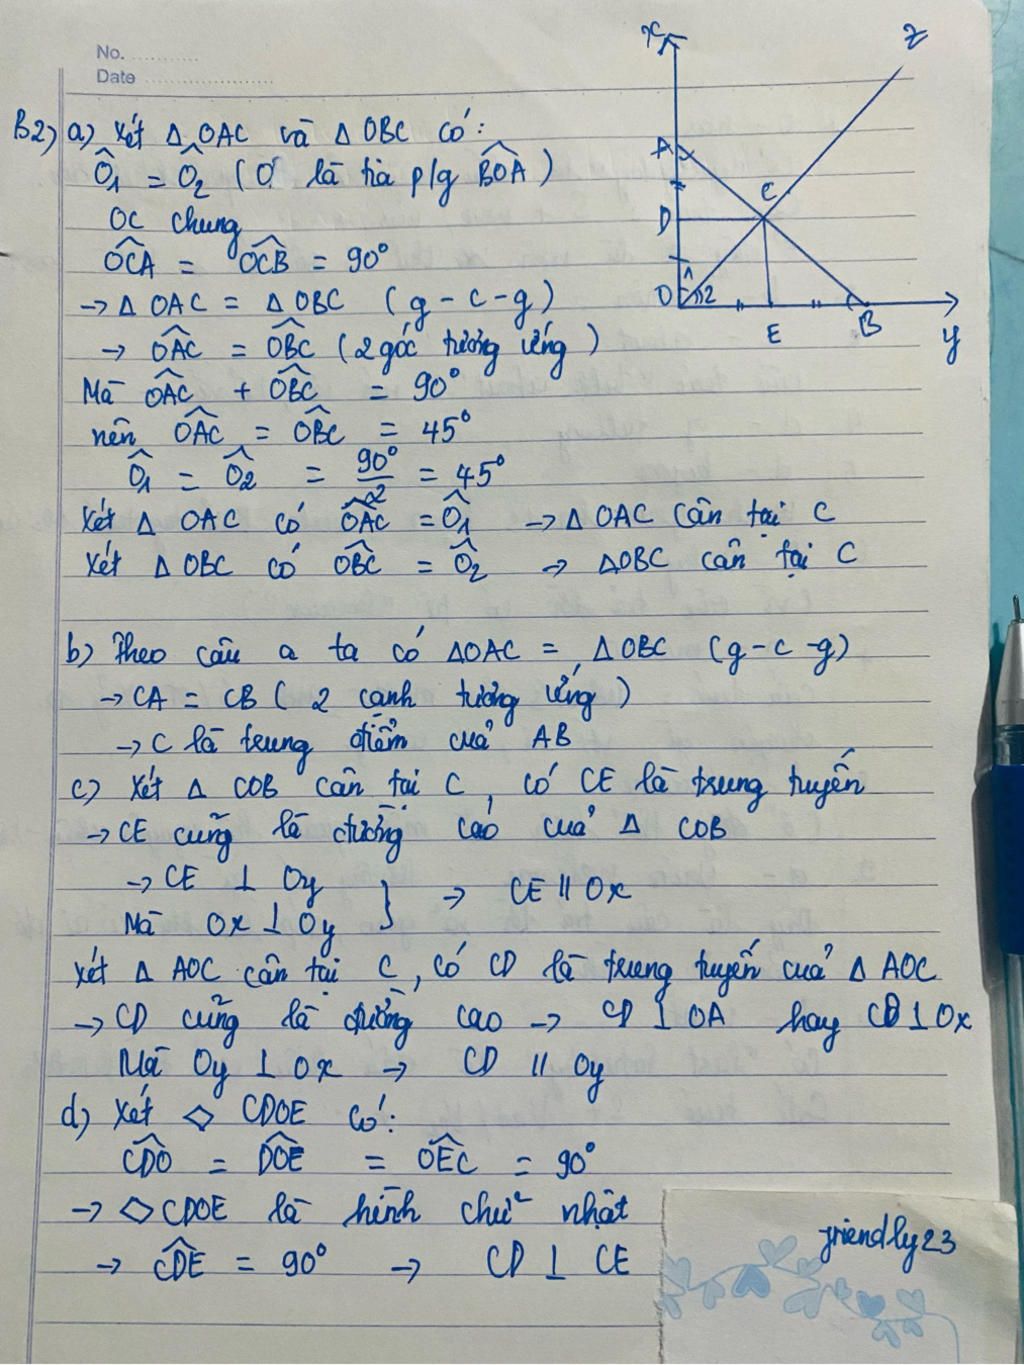 No. ...........
Date ......................
x
z
A
D
C
O
1
2
E
B
y
B2) a) Xét Δ OAC và Δ OBC có:
Ô1 = Ô2 (O là tia p/g BÔA)
OC chung
OĈA = OĈB = 90°
→ Δ OAC = Δ OBC (g - c - g)
→ OÂC = OB̂C (2 góc tương ứng)
Mà OÂC + OB̂C = 90°
nên OÂC = OB̂C = 45°
Ô1 = Ô2 = 90°/2 = 45°
Xét Δ OAC có OÂC = Ô1 → Δ OAC cân tại C
Xét Δ OBC có OB̂C = Ô2 → ΔOBC cân tại C
b) Theo câu a ta có ΔOAC = ΔOBC (g - c - g)
→ CA = CB (2 cạnh tương ứng)
→ C là trung điểm của AB
c) Xét Δ COB cân tại C, có CE là trung tuyến
→ CE cũng là đường cao của Δ COB
→ CE ⊥ Oy
Mà Ox ⊥ Oy } → CE // Ox
Xét Δ AOC cân tại C, có CD là trung tuyến của Δ AOC
→ CD cũng là đường cao → CD ⊥ OA hay CD ⊥ Ox
Mà Oy ⊥ Ox → CD // Oy
d) Xét ◇ CDOE có:
CD̂O = DÔE = OÊC = 90°
→ ◇ CDOE là hình chữ nhật
→ CD̂E = 90° → CD ⊥ CE
friendly23